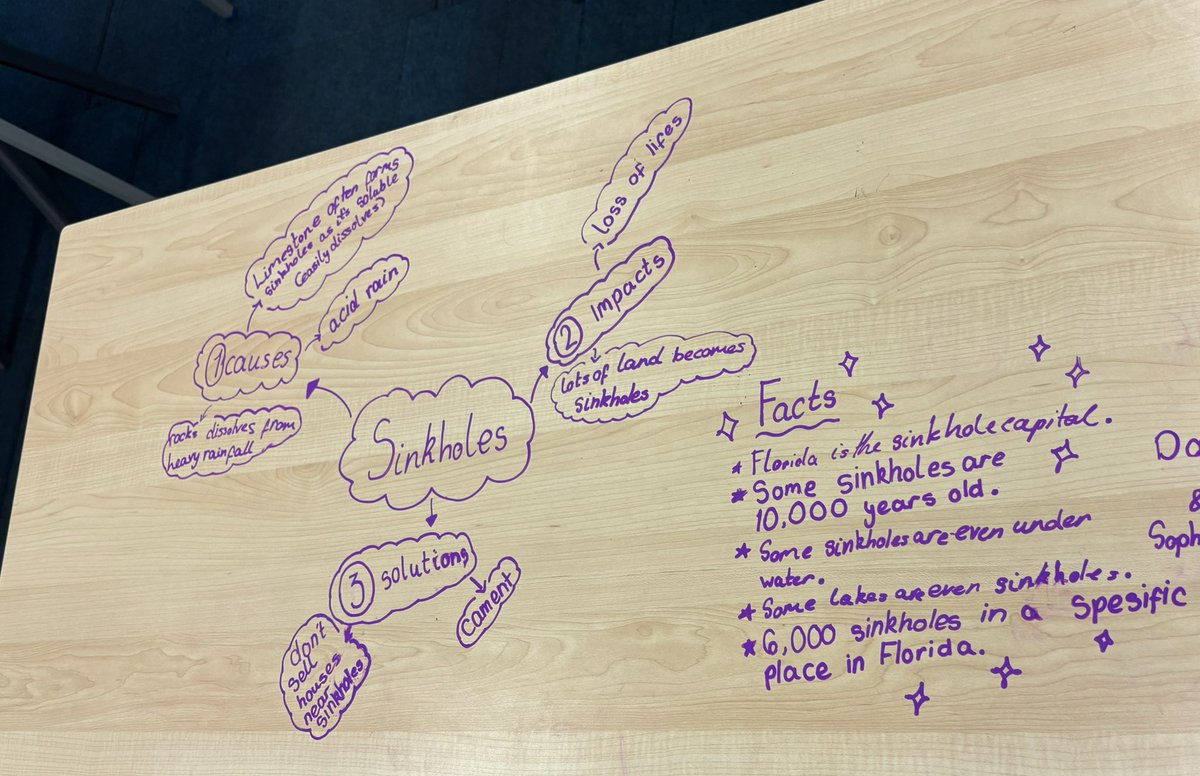 Limestone often forms
sinkholes as it's soluble
(easily dissolves)
acid rain
1 causes
rocks dissolves from
heavy rainfall
Sinkholes
loss of lifes
2 Impacts
lots of land becomes
sinkholes
3 solutions
cament
don't
sell
houses
near
sinkholes
Facts
* Florida is the sinkhole capital.
* Some sinkholes are
10,000 years old.
* Some sinkholes are even under
water.
* Some lakes are even sinkholes.
* 6,000 sinkholes in a spesific
place in Florida.
Da
&
Soph